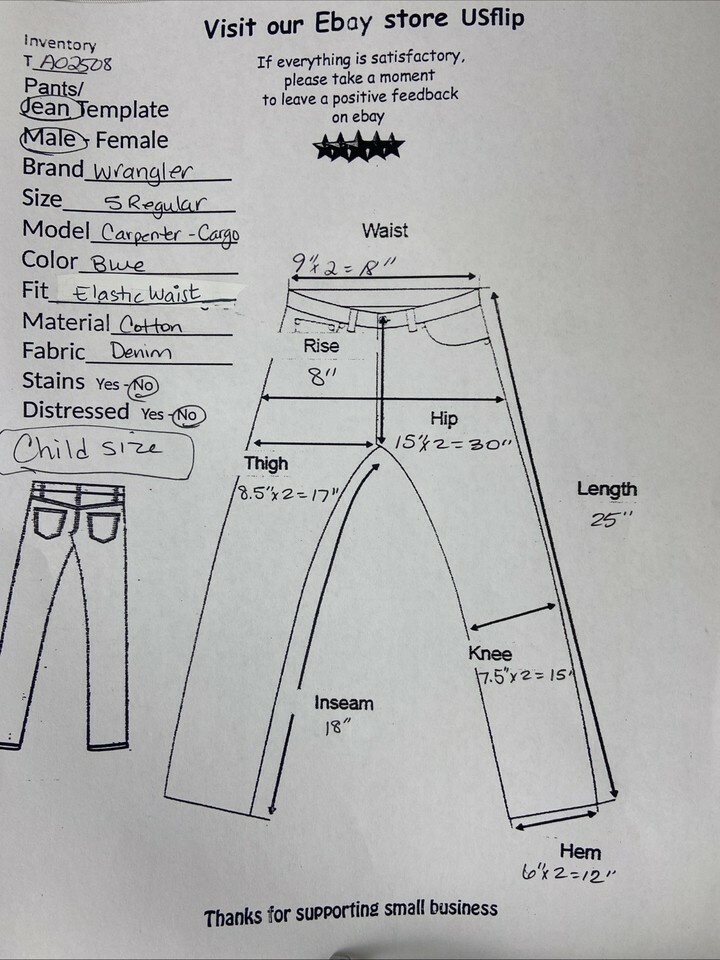 Visit our Ebay store USflip
If everything is satisfactory,
please take a moment
to leave a positive feedback
on ebay
Inventory
T A02508
Pants/
Jean Template
Male - Female
Brand Wrangler
Size 5 Regular
Model Carpenter - Cargo
Color Blue
Fit Elastic Waist
Material Cotton
Fabric Denim
Stains Yes - No
Distressed Yes - No
Child size
Waist
9"x2=18"
Rise
8"
Hip
15"x2=30"
Thigh
8.5"x2=17"
Length
25"
Knee
7.5"x2=15"
Inseam
18"
Hem
6"x2=12"
Thanks for supporting small business